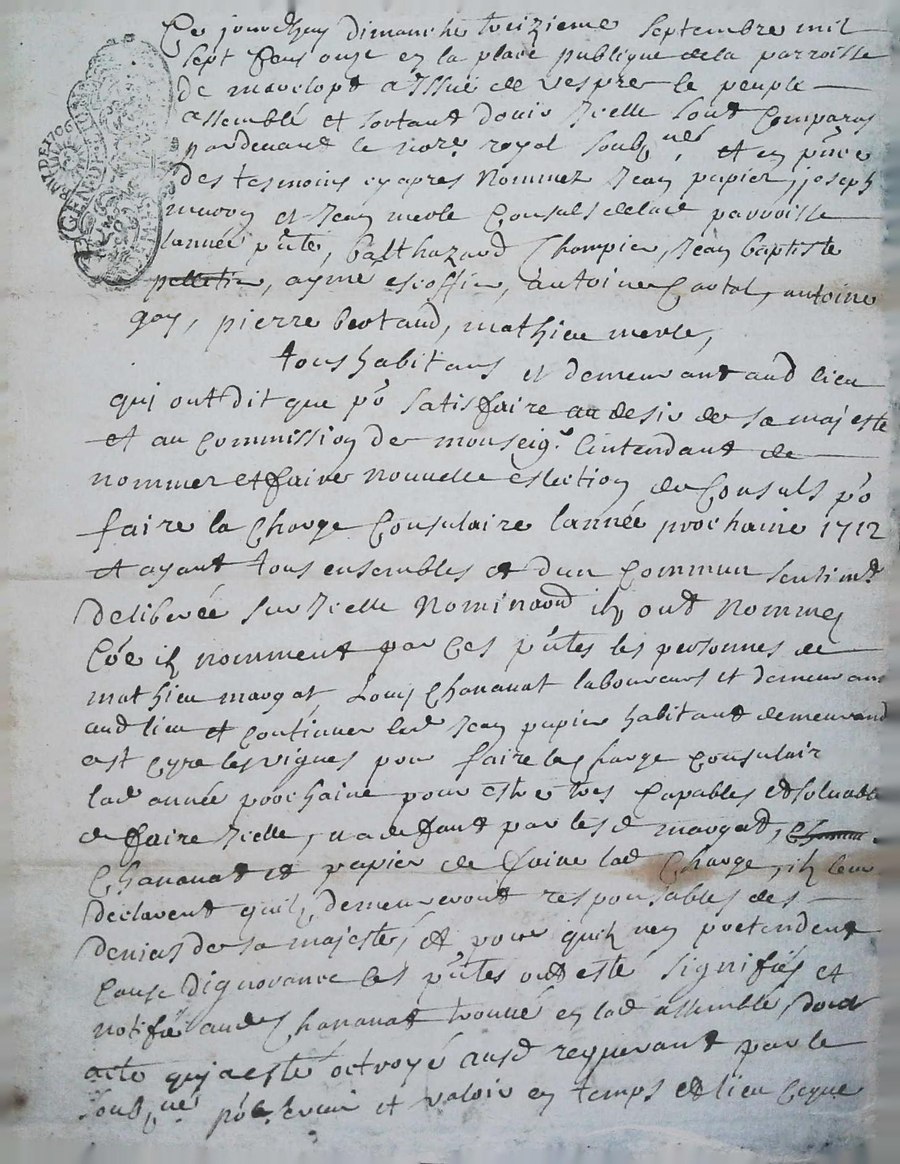 Ce jourdhuy dimanche treizieme septembre mil
sept Cens onze en la place publique dela parroisse
de marclopt a Issüe de vespre le peuple
assemblé et sortant douir Icelle sont Comparus
pardevant le nore royal soubzné, et en pñce
des tesmoins cyapres Nommez Jean papier, joseph
et Jean merle Consuls delad parroisse
lannée pñte, balthazard Champier, Jean baptiste
pelletier, aymé escoffier, antoine antoine
gay, pierre bertaud, mathieu merle,
tous habitans et demeurant aud lieu
qui ont dit que po satisfaire au desir de sa majesté
et au Commission de monseigr lintendant de
nommer et faire nouvelle eslection de Consuls po
faire la Charge Consulaire lannée prochaine 1712
et ayant tous ensembles et dun Commun sentimt
deliberée sur Icelle Nominaon ilz ont Nommez
Cõe ilz nomment par Ces pñtes les personnes de
mathieu margat Louis Chananat laboureurs et demeurant
aud lieu et Continuer led Jean papier habitant demeurand
a st Cyre les vignes pour faire la Charge Consulair
lad année prochaine pour estre tres Capables et solvable
de faire Icelle, et a deffaut par lesd margat,
Chananat et papier de faire lad Charge, ilz leur
declarent quilz demeureront responsables des
deniers de sa majesté, et pour quilz nen pretendent
Cause dignorance les pñtes ont esté signifiés et
notifié aud Chananat trouvé en lad assemblé, dont
acte qui a esté octroyé ausd requerant par le
soubzné po servir et valoir en temps et lieu Ce que